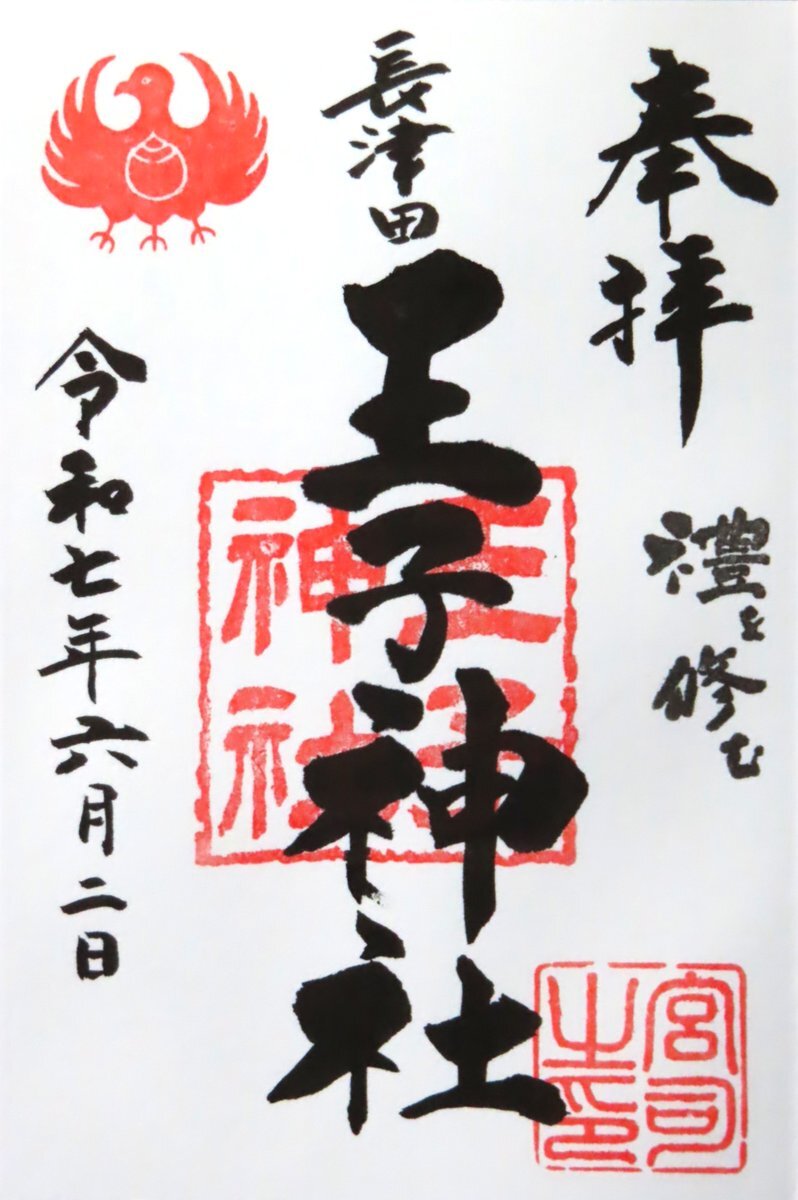 奉拝
禮を修む
長津田
王子神社
王子神社
宮司之印
令和七年六月二日